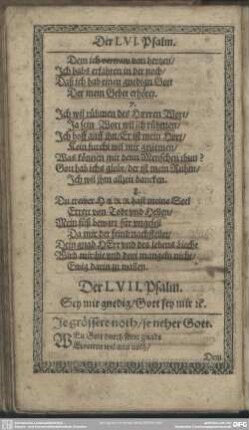 Der LVI. Psalm.
Dem ich vertraw von hertzen/
Ich habs erfahren in der noth/
Daß ich hab einen gnedign Gott
Der mein Gebet erhöret.
7.
Ich wil rühmen des Herren Wort/
Ja sein Wort wil ich rühmen/
Ich hoff auff
Kein furcht wil mir geziemen/
Was können mir denn Menschen thun?
Gott hab ichs globt/ der ist mein Ruhm/
Ich wil ihm allzeit dancken.
8.
Du trewer HERR hast meine Seel
Errett von Todt und Hellen/
Mein füß bewart für
Da mir der feind nachstellet/
Dein gnad HErr und des lebens liecht
Ewig darin zu wallen.
Der LVII. Psalm.
Sey mir gnedig/ Gott sey mir ꝛc.
Je grösser noth/ je neher Gott.
Dem